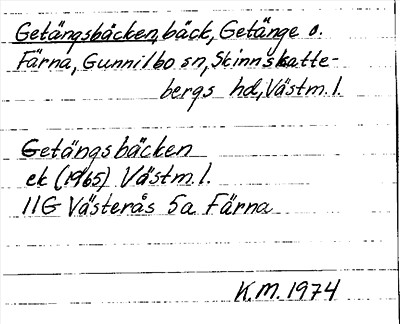 Getängsbäcken, bäck, Getänge o.
Färna, Gunnilbo sn, Skinnskatte-
bergs hd, Västm.l.
Getängsbäcken
ek (1965) Västm.l.
11G Västerås 5a Färna
K.M. 1974